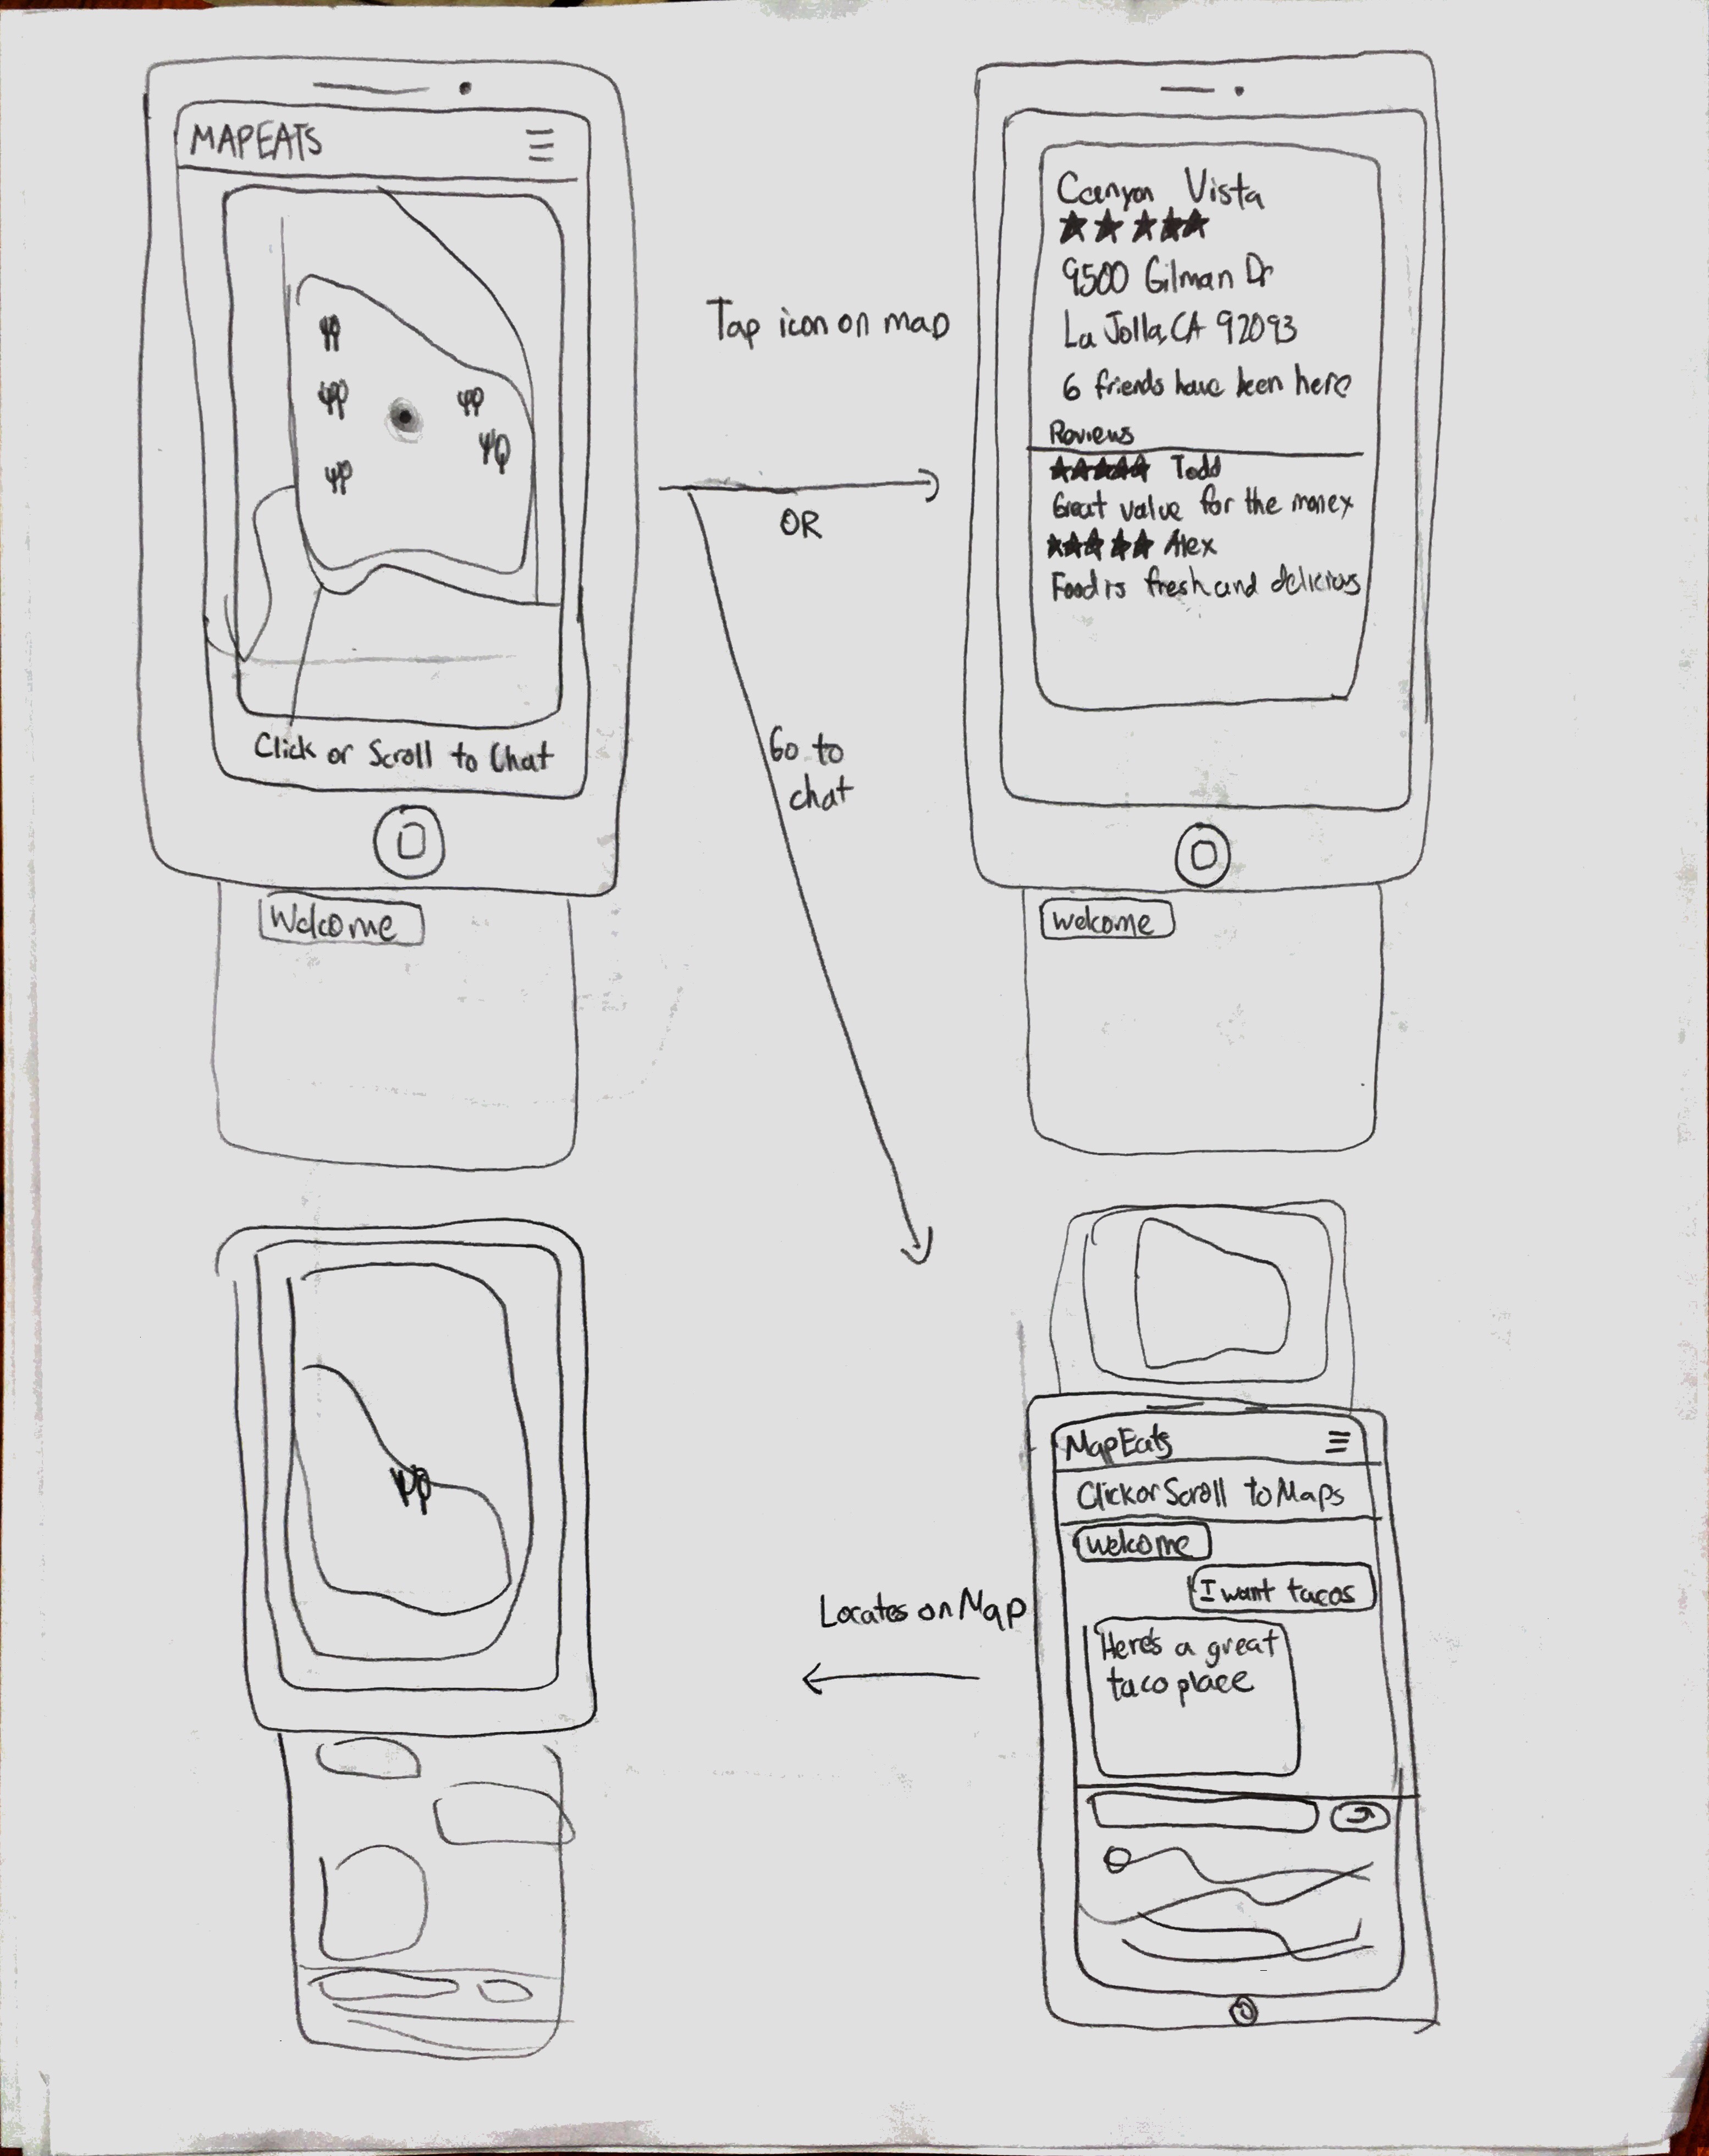 MAPEATS
Click or Scroll to Chat
Welcome
Tap icon on map
OR
Go to
chat
Canyon Vista
9500 Gilman Dr
La Jolla, CA 92093
6 friends have been here
Reviews
Todd
Great value for the money
Alex
Food is fresh and delicious
Welcome
MapEats
Click or Scroll to Maps
Welcome
I want tacos
Here's a great
taco place
Locates on Map